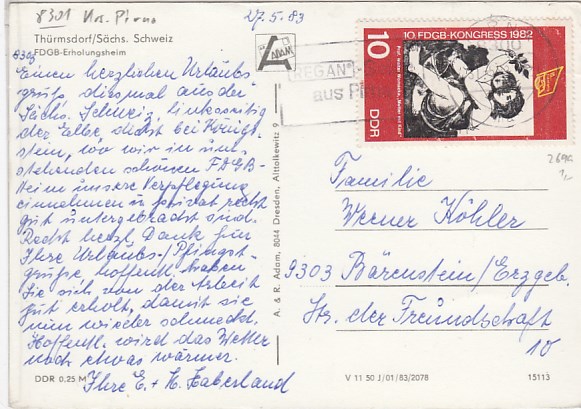 8301 Krs. Pirna
27.5.83
Thürmsdorf/Sächs. Schweiz
FDGB-Erholungsheim
8302
Einen herzlichen Urlaubs-
gruß diesmal aus der
Sächs. Schweiz, linksseitig
der Elbe, dicht bei König-
stein, wo wir im um-
stehenden schönen FDGB-
Heim unsere Verpflegung
einnehmen u. privat recht
gut untergebracht sind.
Recht herzl. Dank für
Ihre Urlaubs-/Pfingst-
grüße, hoffentl. haben
Sie sich von der Arbeit
gut erholt, damit sie
nun wieder schmeckt.
Hoffentl. wird das Wetter
noch etwas wärmer.
Ihre E. + H. Haberland
DDR 0,25 M
ADAM
A. & R. Adam, 8044 Dresden, Alttolkewitz 9
"REGAN"
aus Pirna
10 10. FDGB-KONGRESS 1982
DDR
2699
1,-
Familie
Werner Köhler
9303 Bärenstein/Erzgeb.
Str. der Freundschaft
10
V 11 50 J/01/83/2078
15113